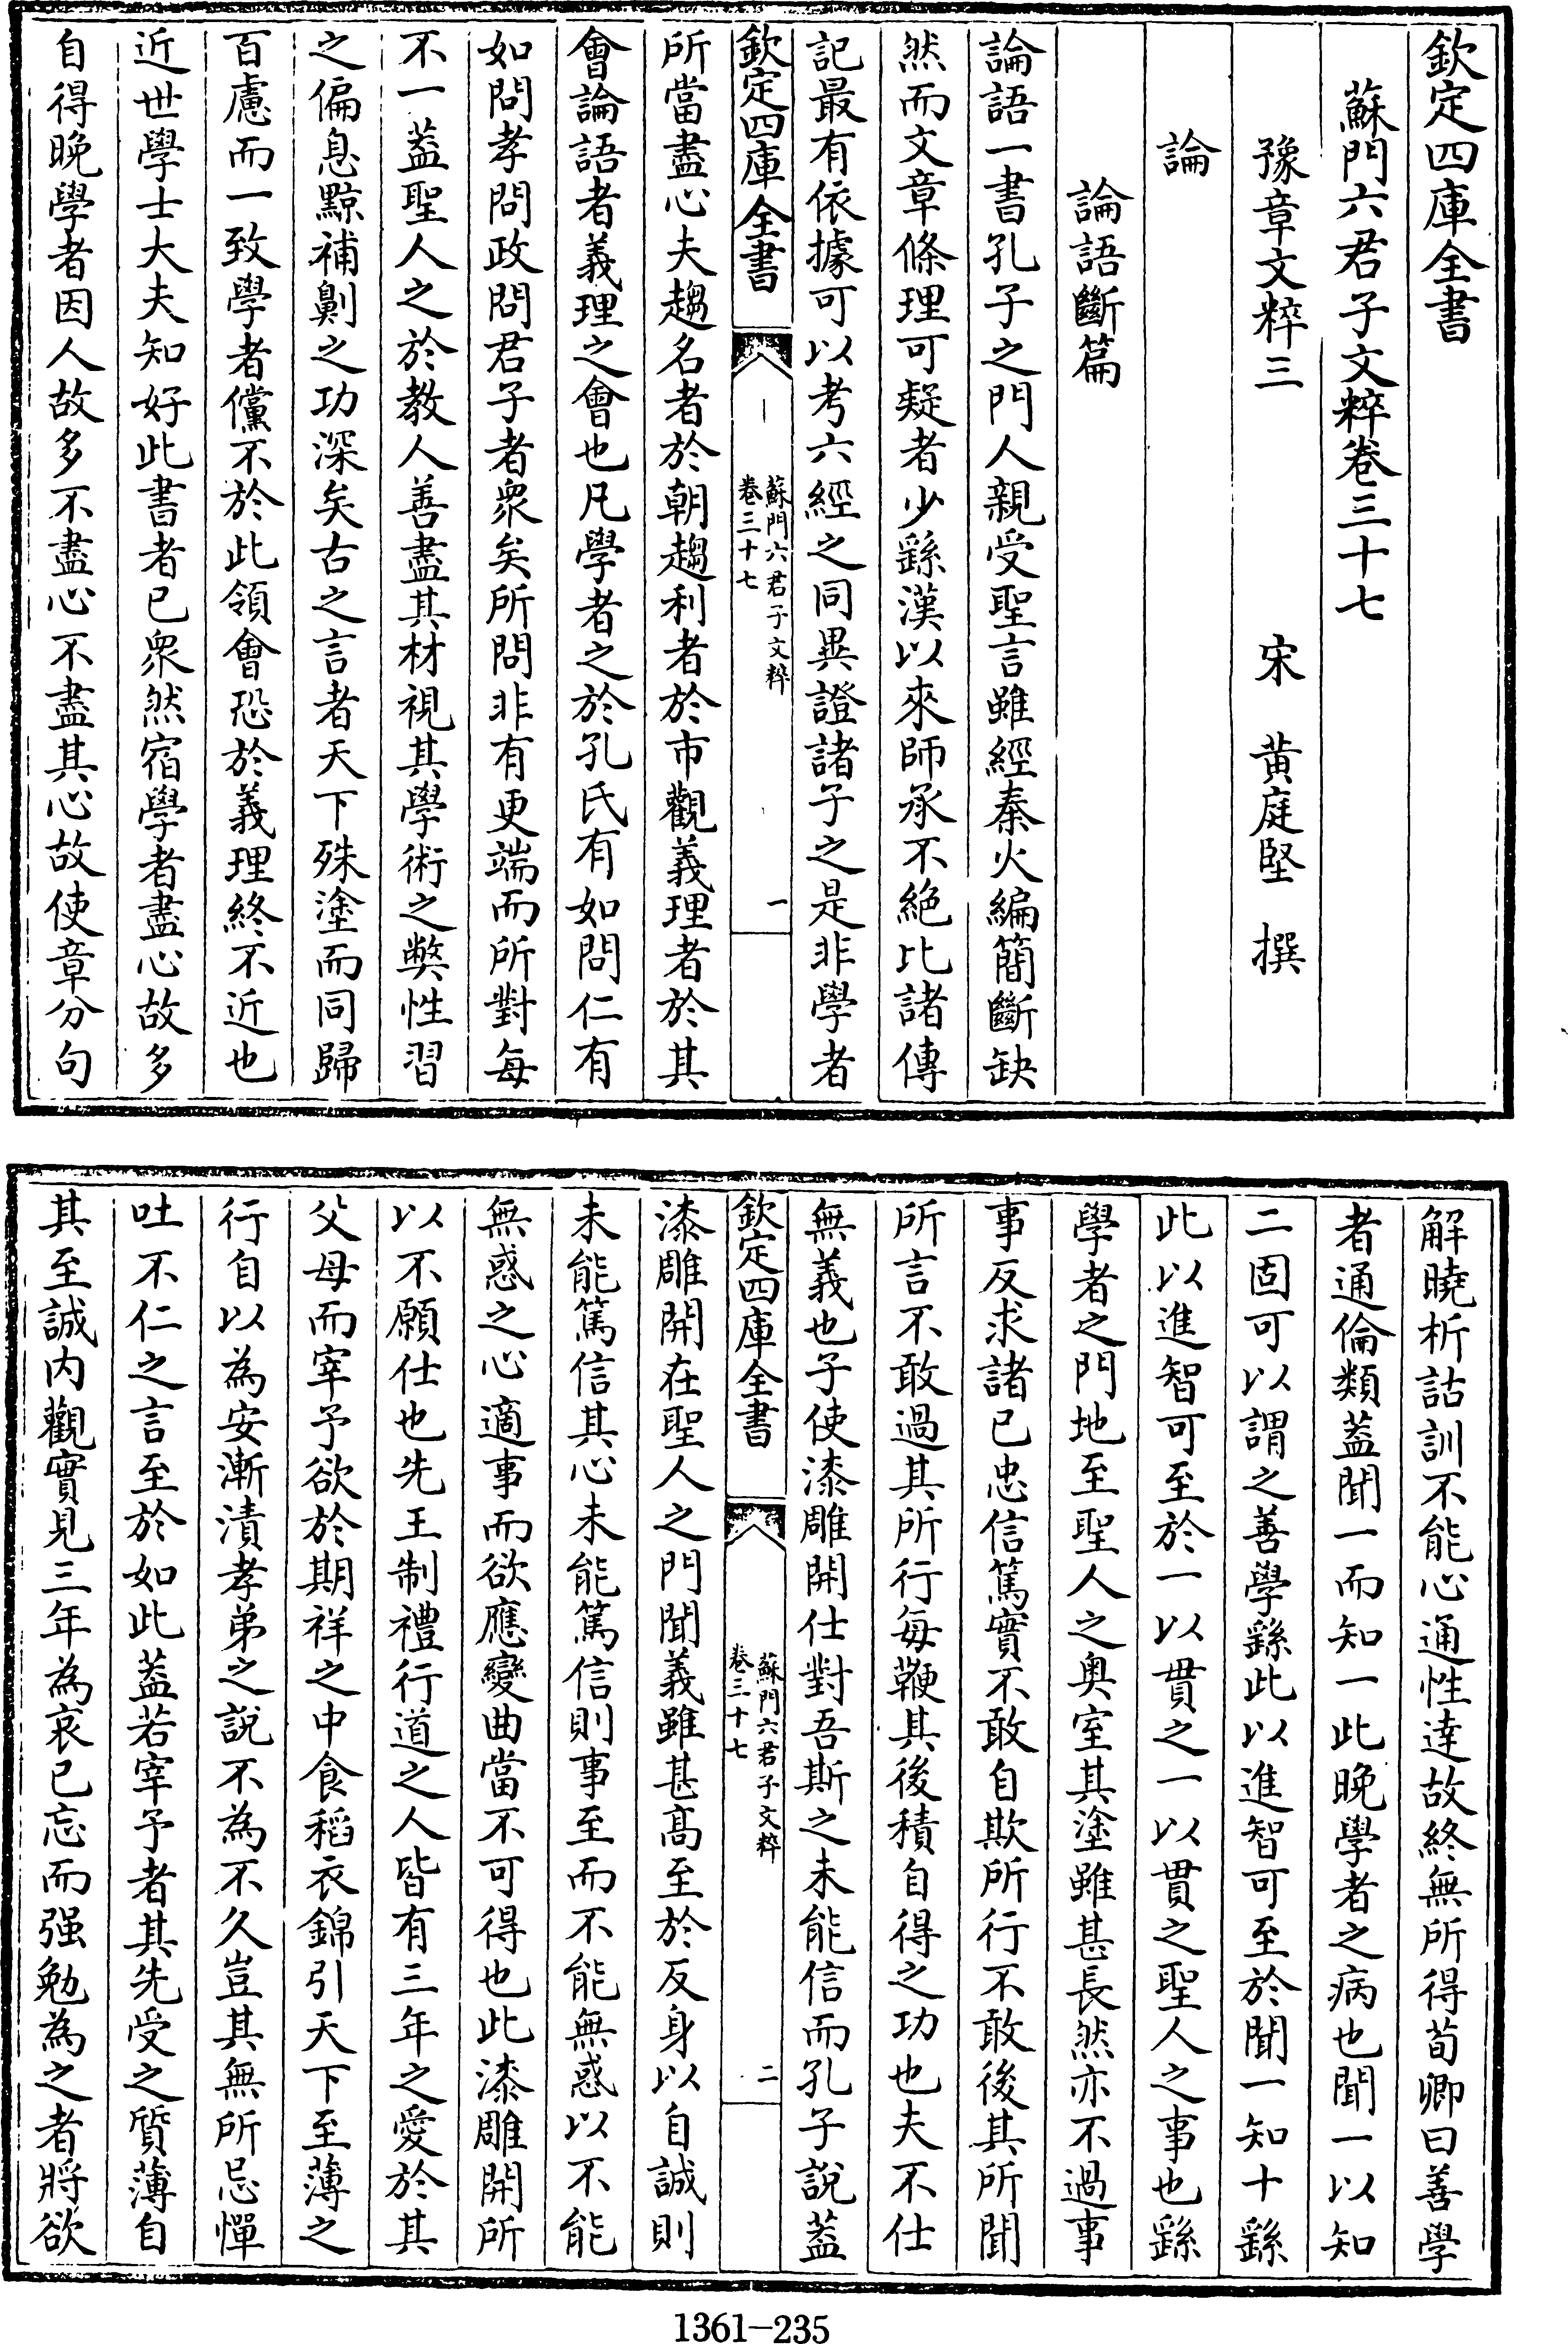 欽定四庫全書
蘇門六君子文粹卷三十七
豫章文粹三　宋　黄庭堅　撰
論
論語斷篇
論語一書孔子之門人親受聖言雖經秦火編簡斷缺
然而文章條理可疑者少繇漢以來師承不絶比諸傳
記最有依據可以考六經之同異證諸子之是非學者
欽定四庫全書
蘇門六君子文粹
卷三十七
一
所當盡心夫趨名者於朝趨利者於市觀義理者於其
會論語者義理之會也凡學者之於孔氏有如問仁有
如問孝問政問君子者衆矣所問非有更端而所對每
不一葢聖人之於教人善盡其材視其學術之弊性習
之偏息黥補劓之功深矣古之言者天下殊塗而同歸
百慮而一致學者儻不於此領會恐於義理終不近也
近世學士大夫知好此書者已衆然宿學者盡心故多
自得晚學者因人故多不盡心不盡其心故使章分句
解曉析詁訓不能心通性達故終無所得荀卿曰善學
者通倫類葢聞一而知一此晚學者之病也聞一以知
二固可以謂之善學繇此以進智可至於聞一知十繇
此以進智可至於一以貫之一以貫之聖人之事也繇
學者之門地至聖人之奥室其塗雖甚長然亦不過事
事反求諸已忠信篤實不敢自欺所行不敢後其所聞
所言不敢過其所行每鞭其後積自得之功也夫不仕
無義也子使漆雕開仕對吾斯之未能信而孔子說葢
欽定四庫全書
蘇門六君子文粹
卷三十七
二
漆雕開在聖人之門聞義雖甚髙至於反身以自誠則
未能篤信其心未能篤信則事至而不能無惑以不能
無惑之心適事而欲應變曲當不可得也此漆雕開所
以不願仕也先王制禮行道之人皆有三年之愛於其
父母而宰予欲於期祥之中食稻衣錦引天下至薄之
行自以為安漸漬孝弟之說不為不久豈其無所忌憚
吐不仁之言至於如此葢若宰予者其先受之質薄自
其至誠内觀實見三年為哀已忘而强勉為之者將欲
1361—235